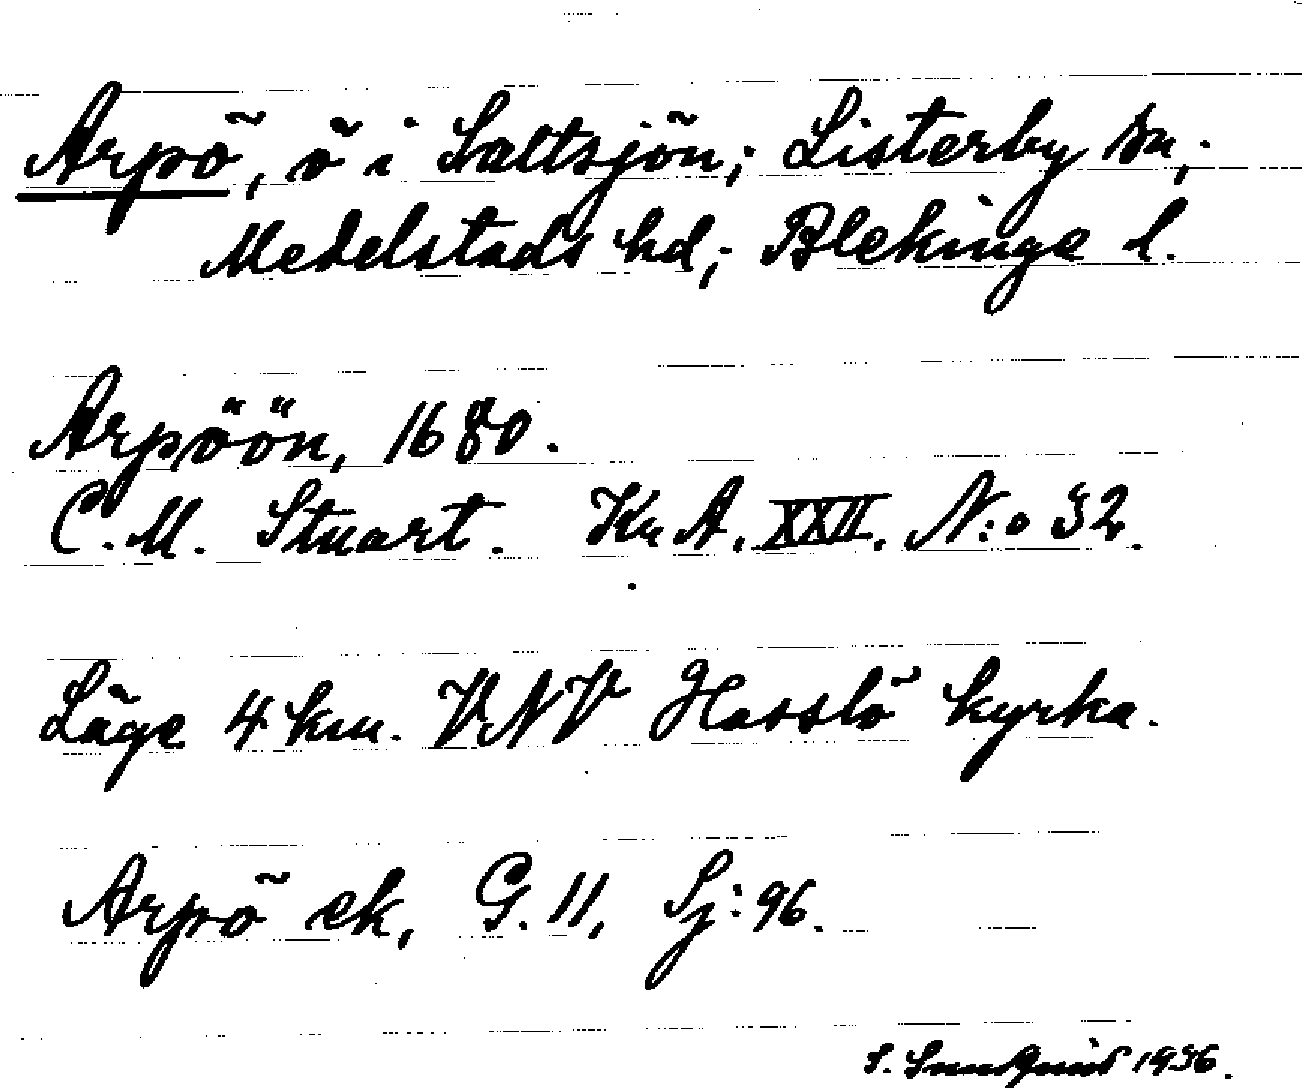 Arpö, ö i Saltsjön; Listerby sn,;
Medelstads hd,; Blekinge l.
Arpöön, 1680.
C. M. Stuart. Kr A. XXII. N:o 32.
Läge 4 km. VNV Hasslö kyrka.
Arpö ek, G. 11, Sj: 96.
S. Sundquist 1936.